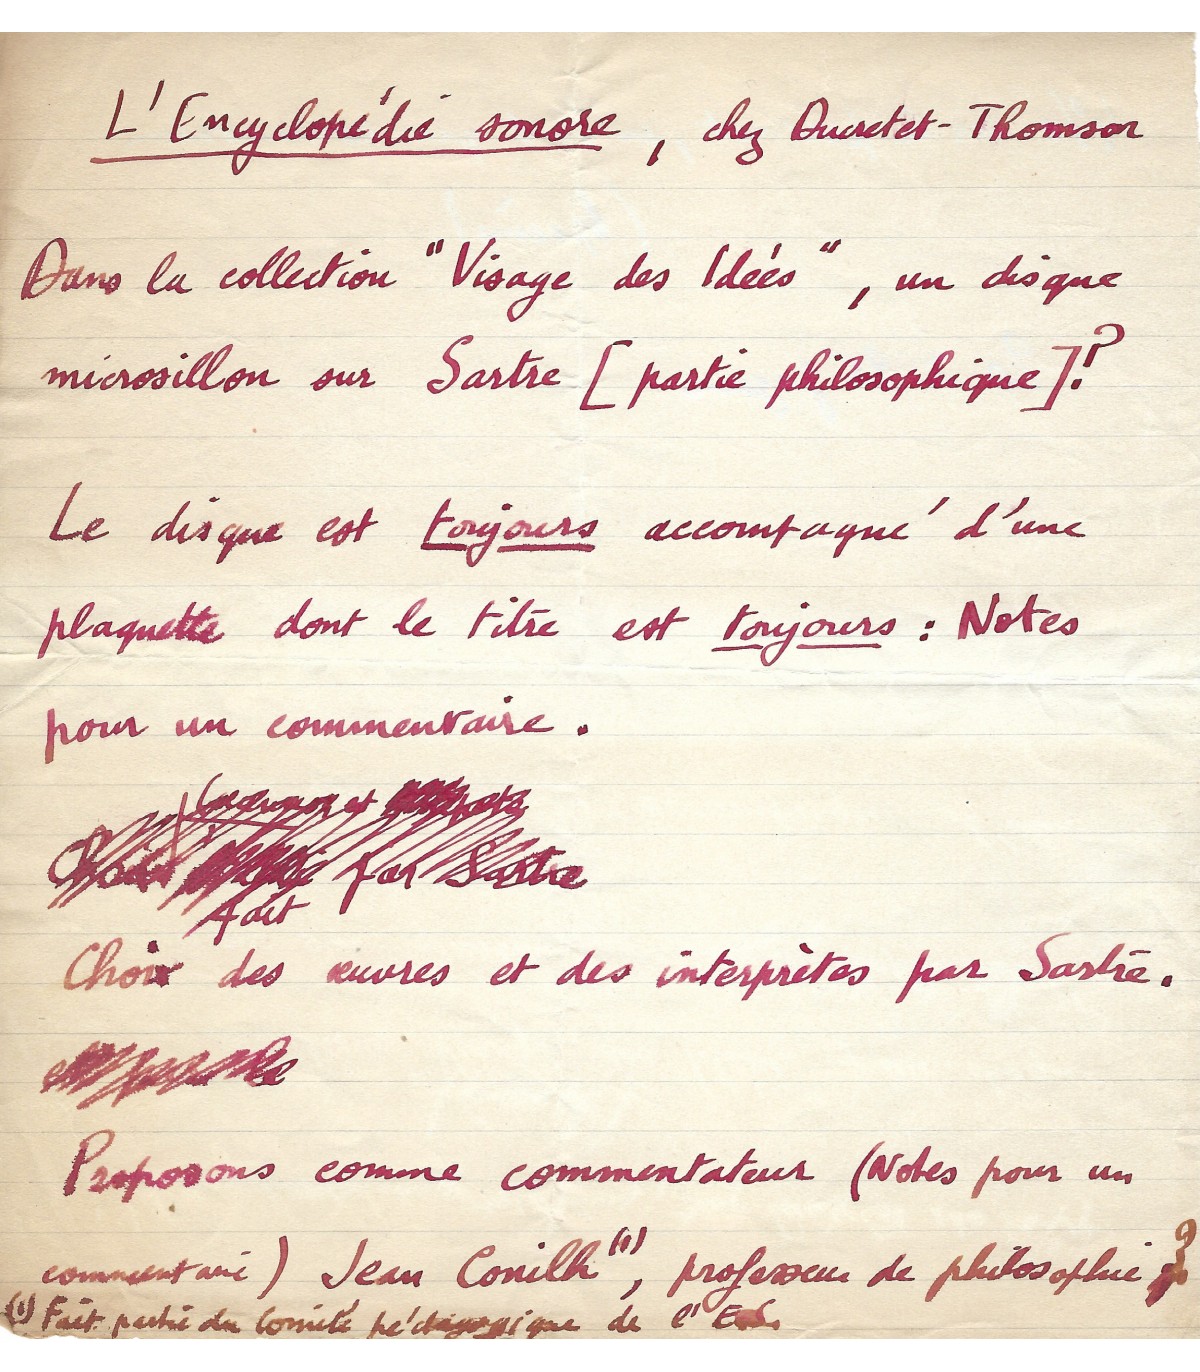 L'Encyclopédie sonore, chez Ducretet-Thomson
Dans la collection "Visage des Idées", un disque
microsillon sur Sartre [partie philosophique]?
Le disque est toujours accompagné d'une
plaquette dont le titre est toujours : Notes
pour un commentaire.
et
Choix par Sartre
fait
Choix des œuvres et des interprètes par Sartre.
Proposons comme commentateur (Notes pour un
commentaire) Jean Conilh(1), professeur de philosophie ?
(1) Fait partie du Comité pédagogique de l'E.S.